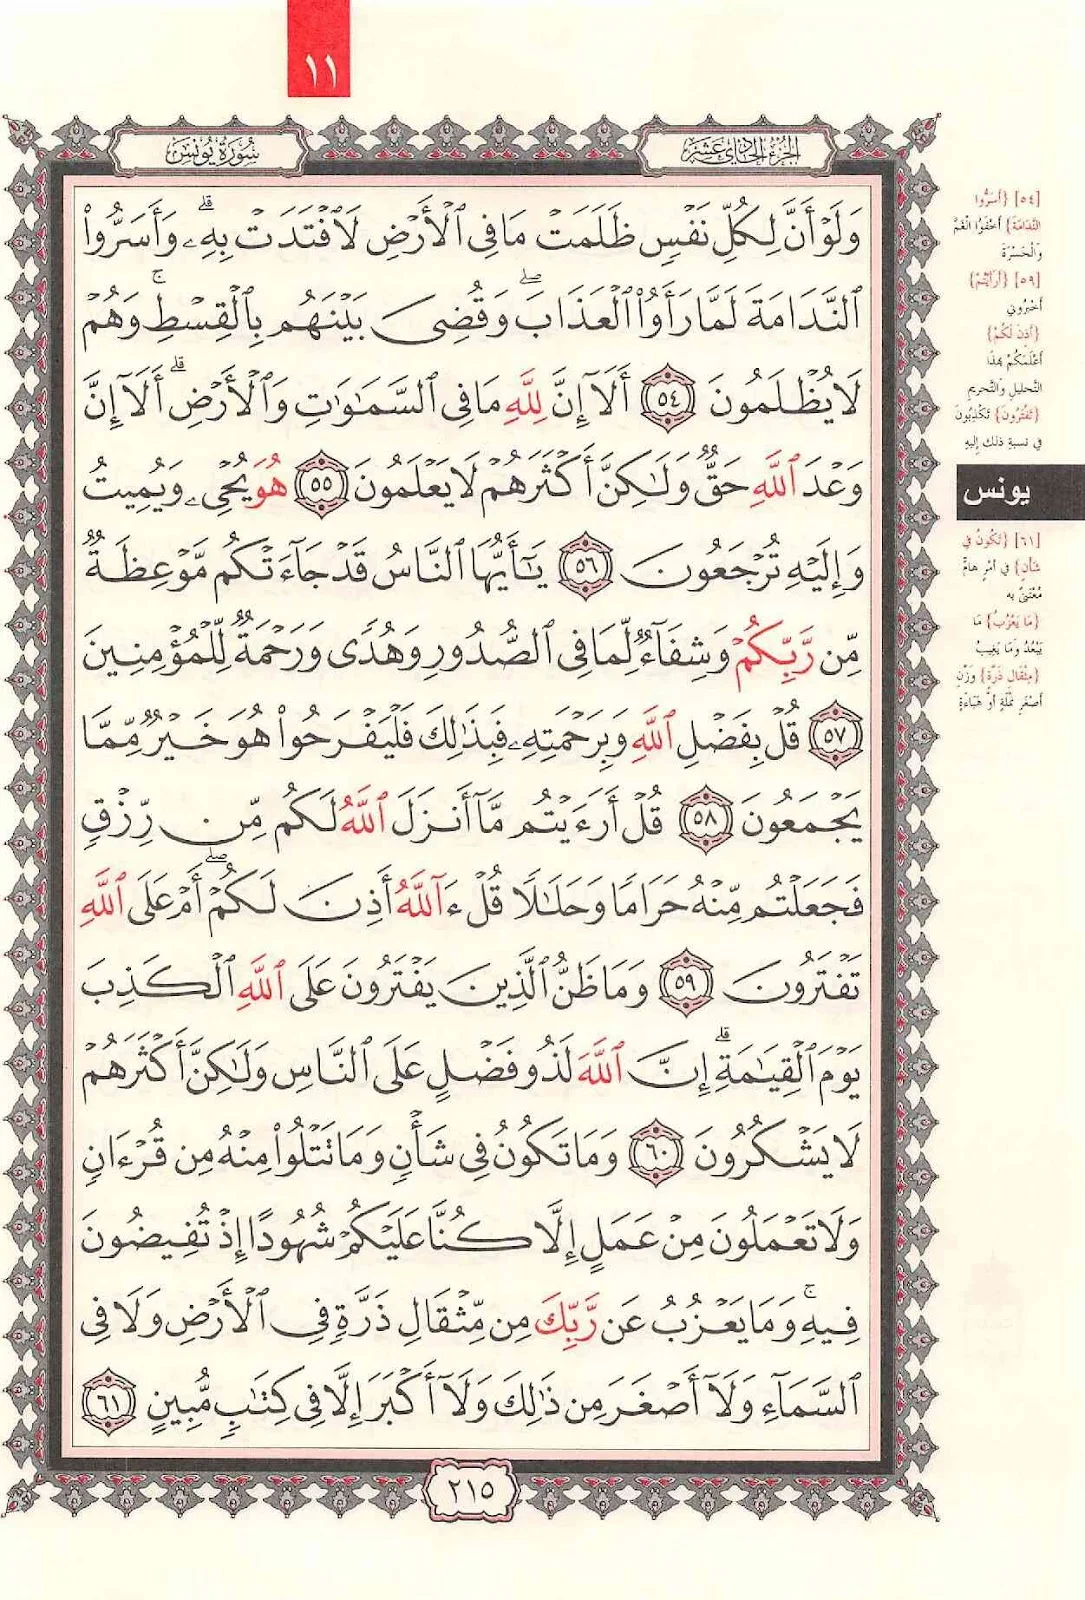 ١١
الجزء الحادي عشر
سورة يونس
وَلَوْ أَنَّ لِكُلِّ نَفْسٍ ظَلَمَتْ مَا فِي ٱلْأَرْضِ لَٱفْتَدَتْ بِهِۦ ۗ وَأَسَرُّوا۟
ٱلنَّدَامَةَ لَمَّا رَأَوُا۟ ٱلْعَذَابَ ۖ وَقُضِيَ بَيْنَهُم بِٱلْقِسْطِ ۚ وَهُمْ
لَا يُظْلَمُونَ ٥٤ أَلَآ إِنَّ لِلَّهِ مَا فِي ٱلسَّمَٰوَٰتِ وَٱلْأَرْضِ ۗ أَلَآ إِنَّ
وَعْدَ ٱللَّهِ حَقٌّ وَلَٰكِنَّ أَكْثَرَهُمْ لَا يَعْلَمُونَ ٥٥ هُوَ يُحْيِۦ وَيُمِيتُ
وَإِلَيْهِ تُرْجَعُونَ ٥٦ يَٰٓأَيُّهَا ٱلنَّاسُ قَدْ جَآءَتْكُم مَّوْعِظَةٌ
مِّن رَّبِّكُمْ وَشِفَآءٌ لِّمَا فِي ٱلصُّدُورِ وَهُدًى وَرَحْمَةٌ لِّلْمُؤْمِنِينَ
٥٧ قُلْ بِفَضْلِ ٱللَّهِ وَبِرَحْمَتِهِۦ فَبِذَٰلِكَ فَلْيَفْرَحُوا۟ هُوَ خَيْرٌ مِّمَّا
يَجْمَعُونَ ٥٨ قُلْ أَرَءَيْتُم مَّآ أَنزَلَ ٱللَّهُ لَكُم مِّن رِّزْقٍ
فَجَعَلْتُم مِّنْهُ حَرَامًا وَحَلَٰلًا قُلْ ءَآللَّهُ أَذِنَ لَكُمْ ۖ أَمْ عَلَى ٱللَّهِ
تَفْتَرُونَ ٥٩ وَمَا ظَنُّ ٱلَّذِينَ يَفْتَرُونَ عَلَى ٱللَّهِ ٱلْكَذِبَ
يَوْمَ ٱلْقِيَٰمَةِ ۗ إِنَّ ٱللَّهَ لَذُو فَضْلٍ عَلَى ٱلنَّاسِ وَلَٰكِنَّ أَكْثَرَهُمْ
لَا يَشْكُرُونَ ٦٠ وَمَا تَكُونُ فِي شَأْنٍ وَمَا تَتْلُوا۟ مِنْهُ مِن قُرْءَانٍ
وَلَا تَعْمَلُونَ مِنْ عَمَلٍ إِلَّا كُنَّا عَلَيْكُمْ شُهُودًا إِذْ تُفِيضُونَ
فِيهِ ۚ وَمَا يَعْزُبُ عَن رَّبِّكَ مِن مِّثْقَالِ ذَرَّةٍ فِي ٱلْأَرْضِ وَلَا فِي
ٱلسَّمَآءِ وَلَآ أَصْغَرَ مِن ذَٰلِكَ وَلَآ أَكْبَرَ إِلَّا فِي كِتَٰبٍ مُّبِينٍ ٦١
٢١٥
[٥٤] {أَسَرُّوا
النَّدَامَةَ} أَخْفَوُا الْغَمَّ
وَالْحَسْرَةَ
[٥٩] {أَرَأَيْتُمْ}
أَخْبِرُونِي
{أَذِنَ لَكُمْ}
أَعْلَمَكُمْ بِهَذَا
التَّحْلِيلِ وَالتَّحْرِيمِ
{تَفْتَرُونَ} تَكْذِبُونَ
فِي نِسْبَةِ ذَلِكَ إِلَيْهِ
يونس
[٦١] {تَكُونُ فِي
شَأْنٍ} فِي أَمْرٍ هَامٍّ
مُعْتَنًى بِهِ
{مَا يَعْزُبُ} مَا
يَبْعُدُ وَمَا يَغِيبُ
{مِثْقَالِ ذَرَّةٍ} وَزْنِ
أَصْغَرِ نَمْلَةٍ أَوْ هَبَاءَةٍ